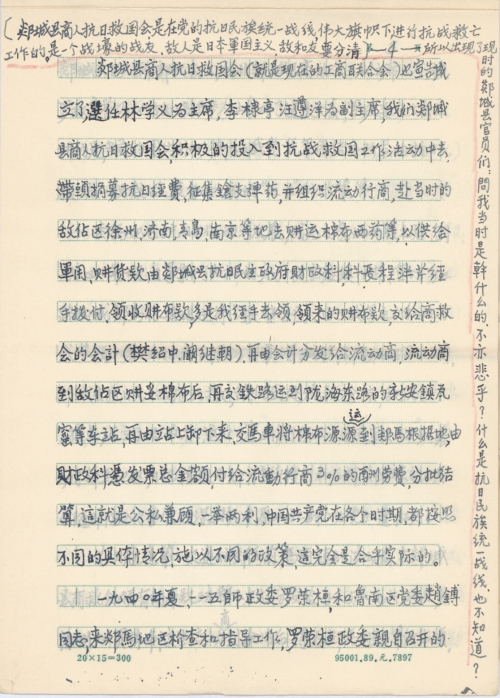 (郯城县商人抗日救国会是在党的抗日民族统一战线伟大旗帜下进行抗战救亡
工作的。是一个战壕的战友,敌人是日本軍国主义,敌和友要分清)—4—所以出现了现
郯城县商人抗日救国会(就是现在的工商联合会)也宣告成
立了,選任林学义为主席,李棟亭汪遵洋为副主席,我们郯城
县商人抗日救国会,积极的投入到抗战救国工作活动中去,
帶頭捐募抗日经費,征集鎗支弹药,并组织流动行商,赴当时的
敌佔区徐州,济南,青島,南京等地去购运棉布西药等,以供给
軍用,购货款由郯城县抗日民主政府财政科,科長程津芹经
手拨付,领收购布款多是我经手去领,领来的购布款,交给商救
会的会計(樊绍中,阚继朝),再由会计分发给流动商,流动商
到敌佔区购妥棉布后,再交铁路运到陇海东路的新安鎮瓦
窰等车站,再由站上卸下来,交馬車将棉布源源运到郯馬根据地,由
财政科憑发票总金额付给流動行商3%的酬劳費,分批结
算,这就是公私兼顾,一举两利,中国共产党在各个时期,都按照
不同的具体情况,施以不同的政策,這完全是合乎实际的。
一九四0年夏,一一五师政委罗荣桓,和鲁南区党委趙鎛
同志,来郯馬地区检查和指导工作,罗荣桓政委親自召开的
20×15=300
95001.89.元.7897
时的郯城县官员们:問我当时是幹什么的,不亦悲乎?什么是抗日民族統一战线,也不知道?